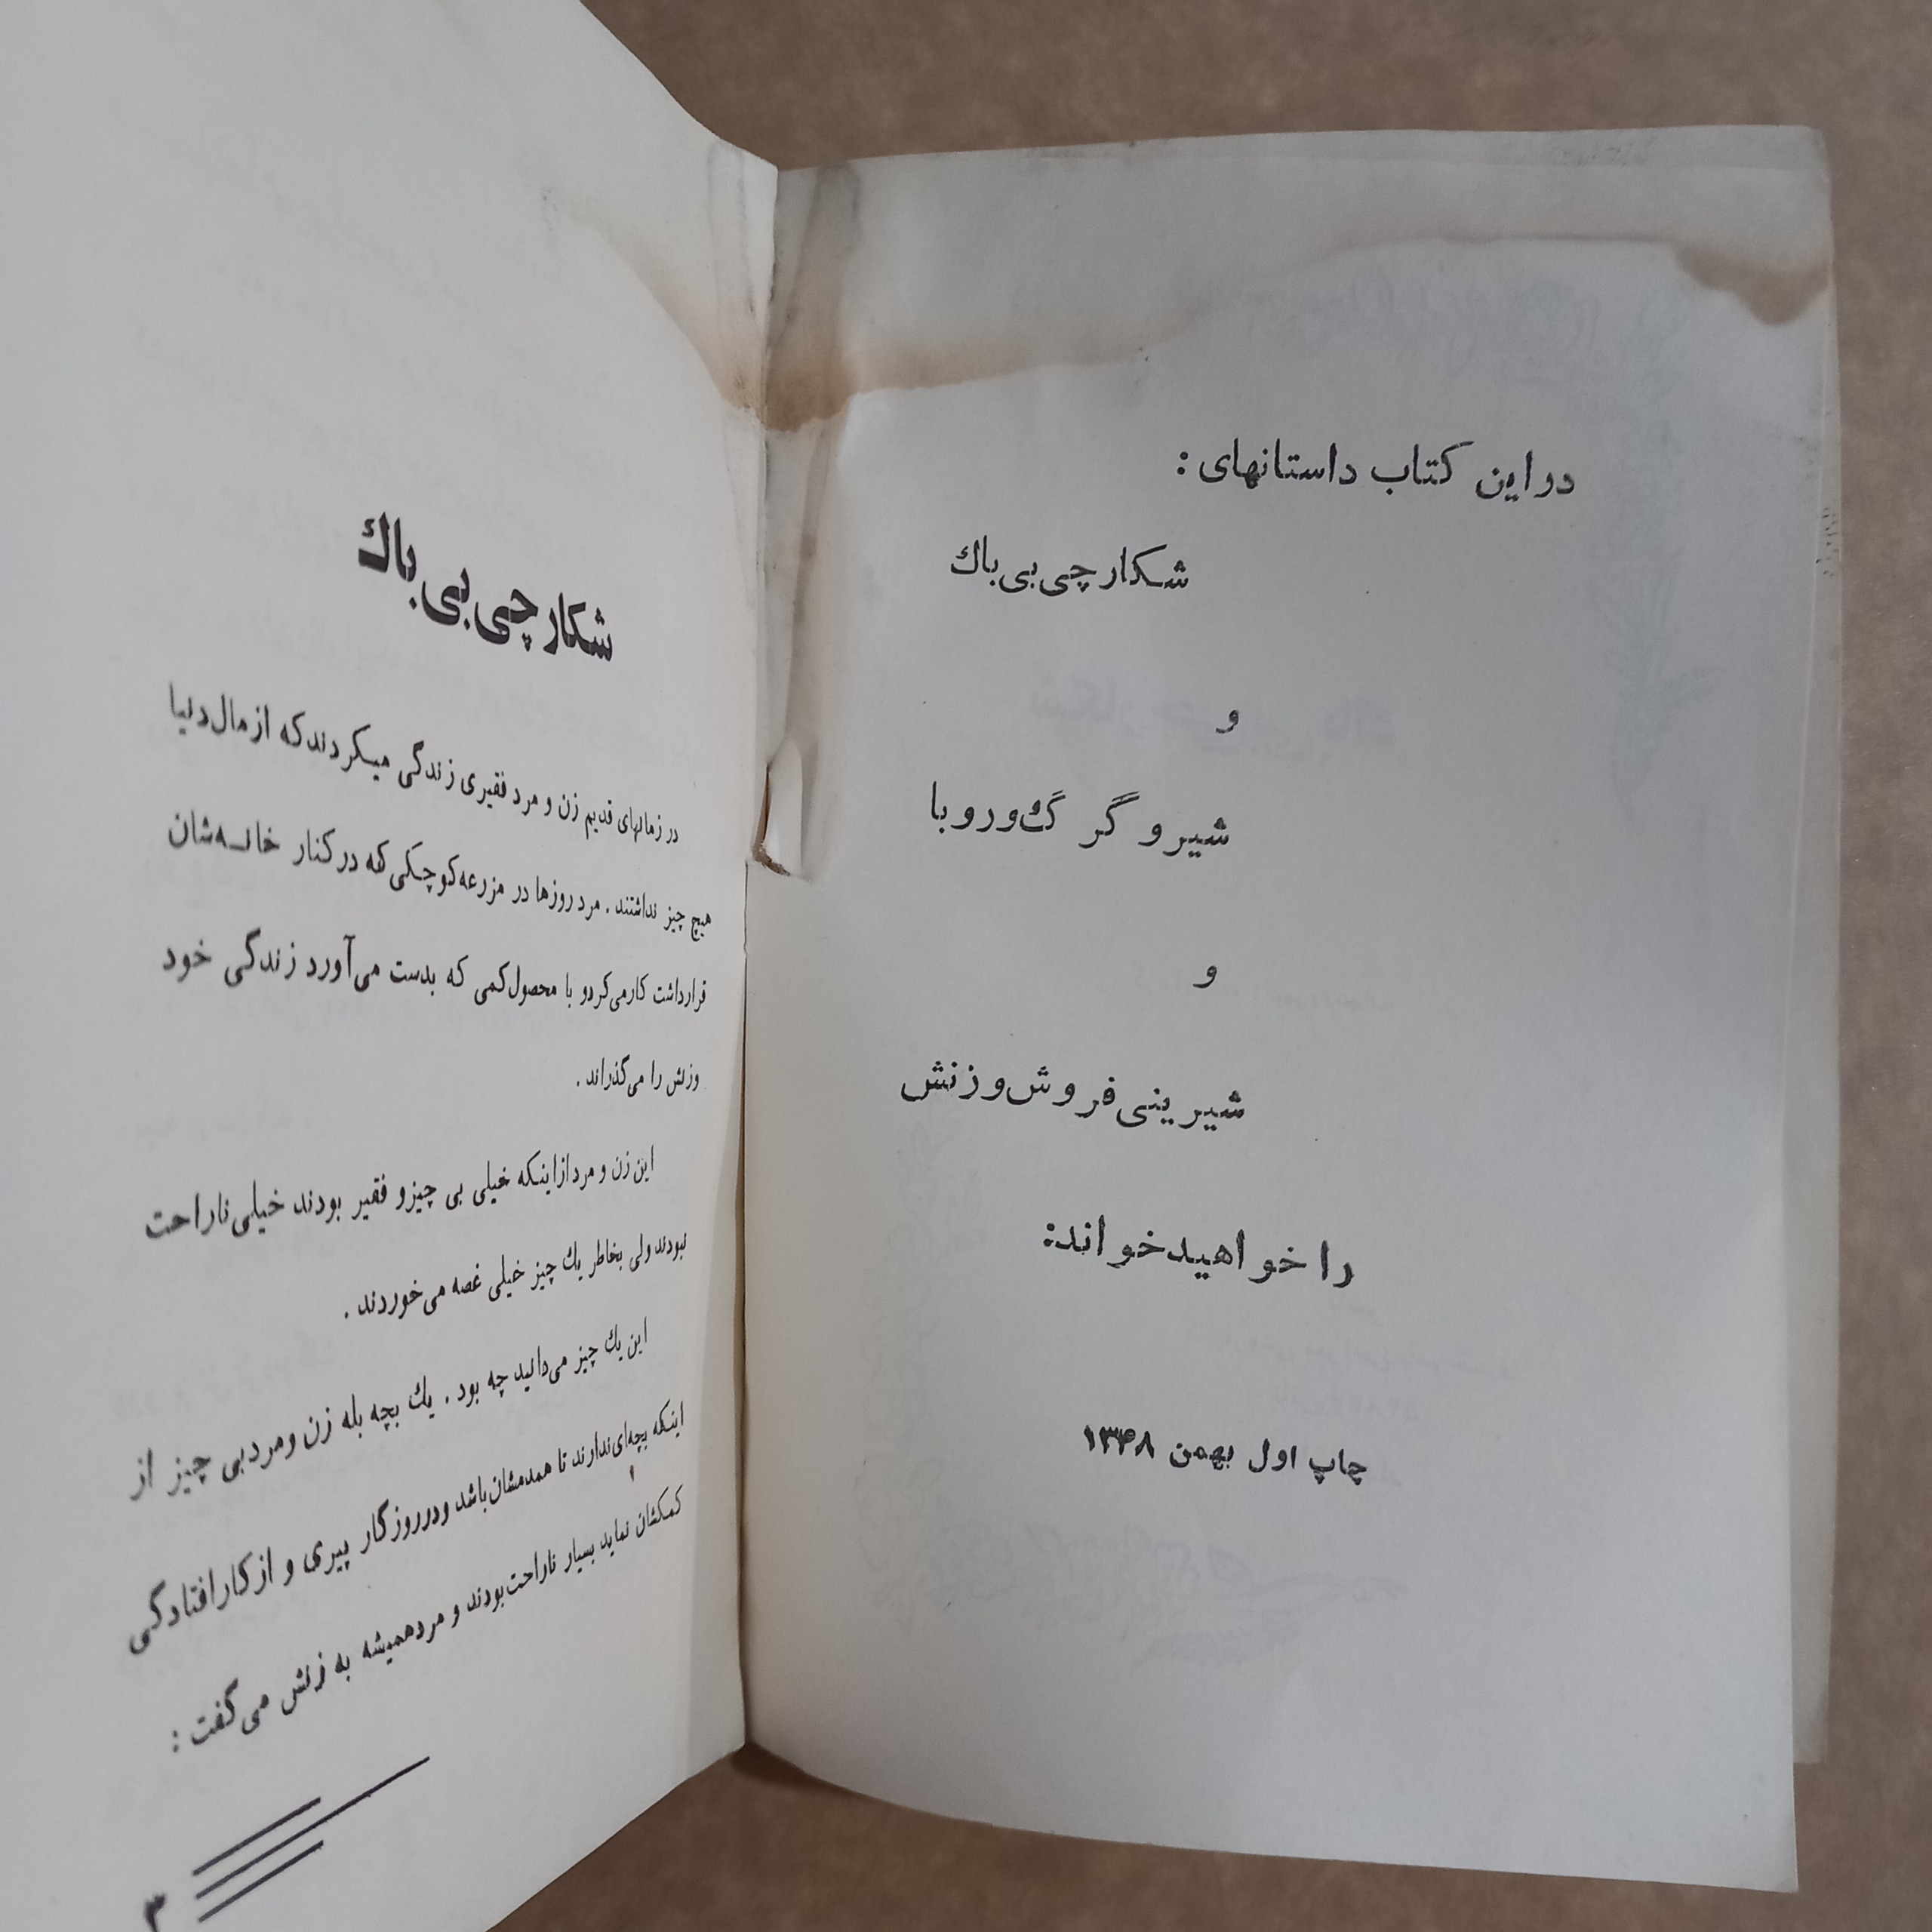 در این کتاب داستانهای :
شکارچی بی باك
و
شیر و گرگ و روبا
و
شیرینی فروش و زنش
را خواهید خواند:
چاپ اول بهمن ۱۳۴۸
شکارچی بی باك
در زمانهای قدیم زن و مرد فقیری زندگی میکردند که از مال دنیا
هیچ چیز نداشتند . مرد روزها در مزرعه کوچکی که در کنار خانه‌شان
قرار داشت کار می‌کرد و با محصول کمی که بدست می‌آورد زندگی خود
و زنش را می‌گذراند .
این زن و مرد از اینکه خیلی بی چیز و فقیر بودند خیلی ناراحت
نبودند ولی بخاطر یك چیز خیلی غصه می‌خوردند .
این یك چیز می‌دانید چه بود . یك بچه بله زن و مرد بی چیز از
اینکه بچه‌ای ندارند تا همدمشان باشد و در روزگار پیری و از کار افتادگی
کمکشان نماید بسیار ناراحت بودند و مرد همیشه به زنش می‌گفت :
۳